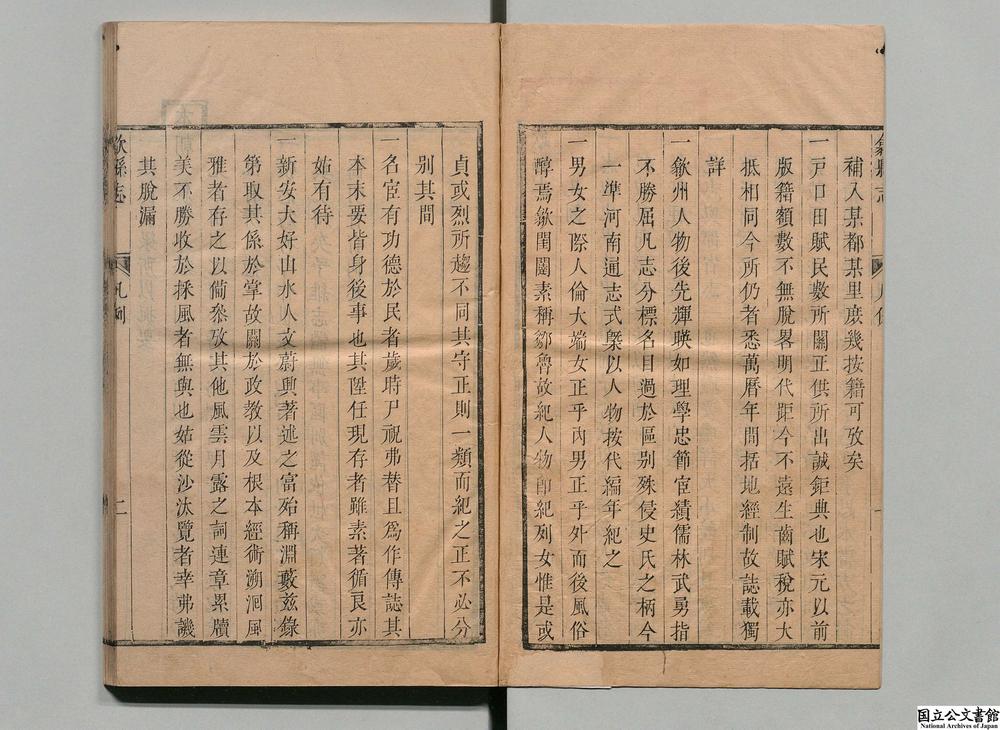 歙縣志
凡例
補入某都某里庶幾按籍可攷矣
一戸口田賦民數所關正供所出誠鉅典也宋元以前
版籍額數不無脫畧明代距今不遠生齒賦稅亦大
抵相同今所仍者悉萬曆年間括地經制故誌載獨
詳
一歙州人物後先輝暎如理學忠節宦績儒林武勇指
不勝屈凡志分標名目過於區别殊侵史氏之柄今
一準河南通志式槩以人物按代編年紀之
一男女之際人倫大端女正乎内男正乎外而後風俗
醇焉歙閨闥素稱鄒魯故紀人物即紀列女惟是或
貞或烈所趨不同其守正則一類而紀之正不必分
别其間
一名宦有功德於民者歲時尸祝弗替且爲作傳誌其
本末要皆身後事也其陞任現存者雖素著循良亦
姑有待
一新安大好山水人文蔚興著述之富殆稱淵藪兹錄
第取其係於掌故關於政教以及根本經術溯洄風
雅者存之以備叅攷其他風雲月露之詞連章累牘
美不勝收於採風者無與也姑從沙汰覽者幸弗譏
其脫漏
歙縣志
凡例
二
国立公文書館
National Archives of Japan